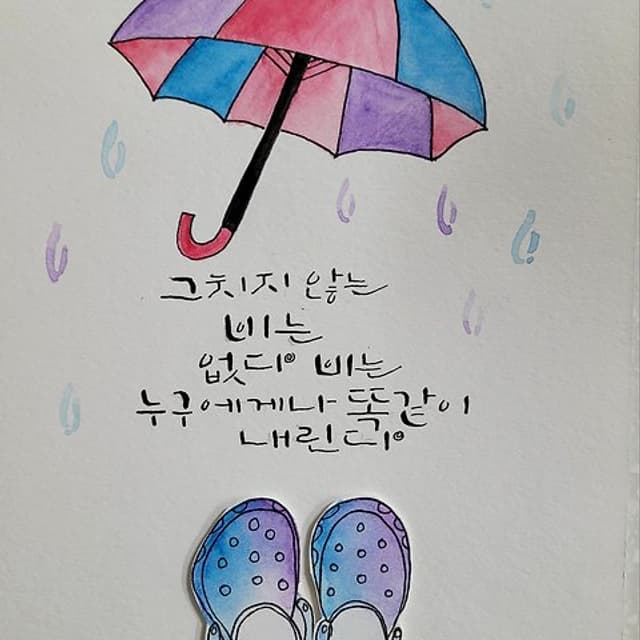 그치지 않는
비는
없다 비는
누구에게나 똑같이
내린다